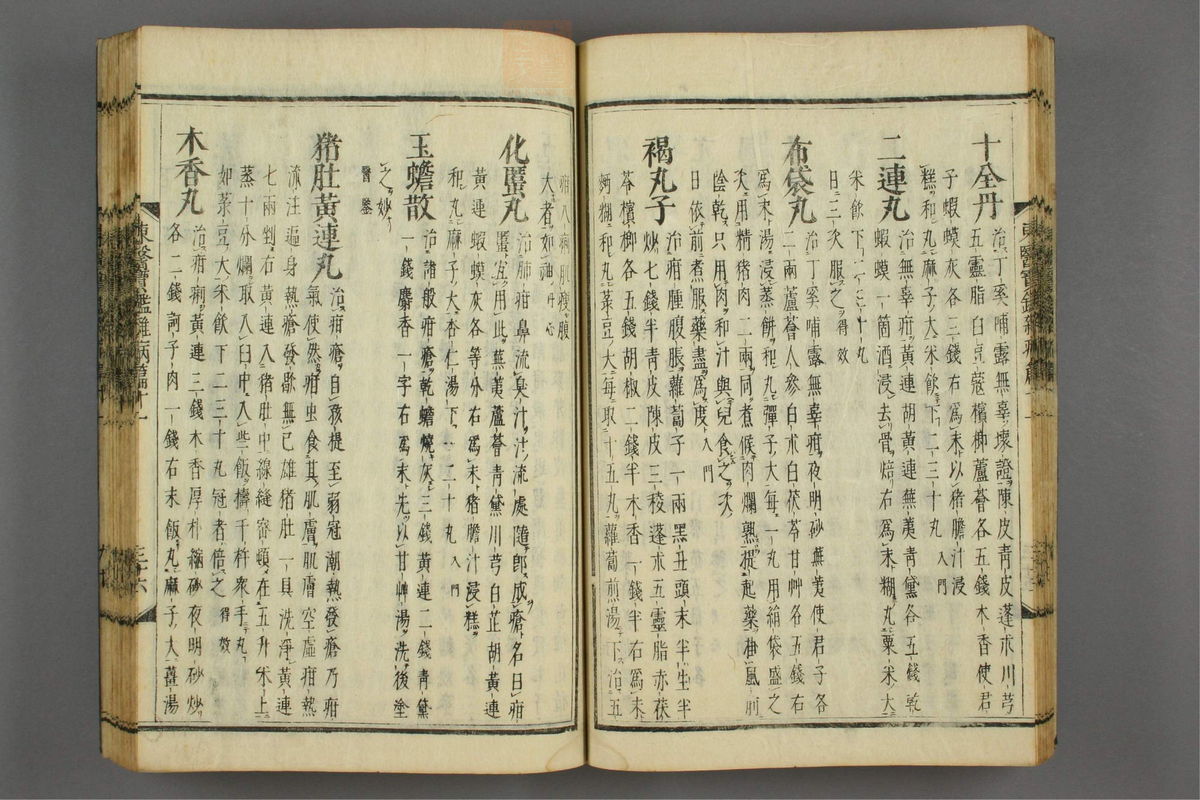 十全丹 治丁奚哺露無辜壞證陳皮青皮蓬朮川芎
五靈脂白豆蔻檳榔蘆薈各五錢木香使君
子蝦蟆灰各三錢右爲末以猪膽汁浸
糕和丸麻子大米飲下二三十丸入門
二連丸 治無辜疳黃連胡黃連蕪荑青黛各五錢乾
蝦蟆一箇酒浸去骨焙右爲末糊丸粟米大
米飲下二三十丸
日三次服之得效
布袋丸 治丁奚哺露無辜疳夜明砂蕪荑使君子各
二兩蘆薈人參白朮白茯苓甘艸各五錢右
爲末湯浸蒸餠和丸彈子大每一丸用絹袋盛之
次用精猪肉二兩同煮候肉爛熟提起藥掛風前
陰乾只用肉和汁與兒食之次
日依前煮服藥盡爲度入門
褐丸子 治疳腫腹脹蘿蔔子一兩黑丑頭末半生半
炒七錢半青皮陳皮三稜蓬朮五靈脂赤茯
苓檳榔各五錢胡椒二錢半木香一錢半右爲末
麪糊和丸菉豆大每取十五丸蘿蔔煎湯下治五
疳八痢肌瘦腹
大者如神丹心
化䘌丸 治肺疳鼻流臭汁汁流處隨卽成瘡名曰疳
䘌宜用此蕪荑蘆薈青黛川芎白芷胡黃連
黃連蝦蟆灰各等分右爲末猪膽汁浸糕
和丸麻子大杏仁湯下二十丸入門
玉蟾散 治諸般疳瘡乾蟾燒灰三錢黃連二錢青黛
一錢麝香一字右爲末先以甘艸湯洗後塗
之妙
醫鑒
猪肚黃連丸 治疳瘡自孩提至弱冠潮熱發瘡乃疳
氣使然疳虫食其肌膚肌膚空虛疳熱
流注遍身熱瘡發歇無已雄猪肚一具洗淨黃連
七兩剉右黃連入猪肚中線縫密頓在五升米上
蒸十分爛取入臼中入些飯擣千杵衆手丸
如菉豆大米飮下二三十丸冠者倍之得效
木香丸 治疳痢黃連三錢木香厚朴縮砂夜明砂炒
各二錢訶子肉一錢右末飯丸麻子大薑湯
東醫寶鑑雜病篇十一
三十六